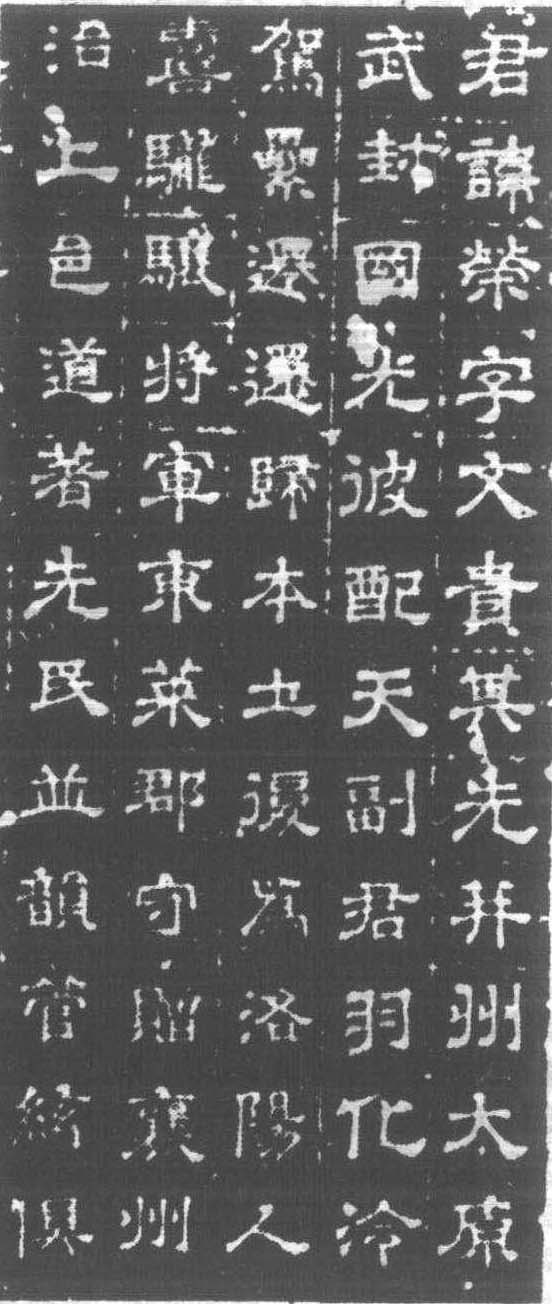 君諱榮字文貴其先并州太原
武封國光彼配天副君羽化泠
駕累遷還歸本土後為洛陽人
喜龍驤將軍東萊郡守贈襄州
洽上邑道著先民並韻管絃俱